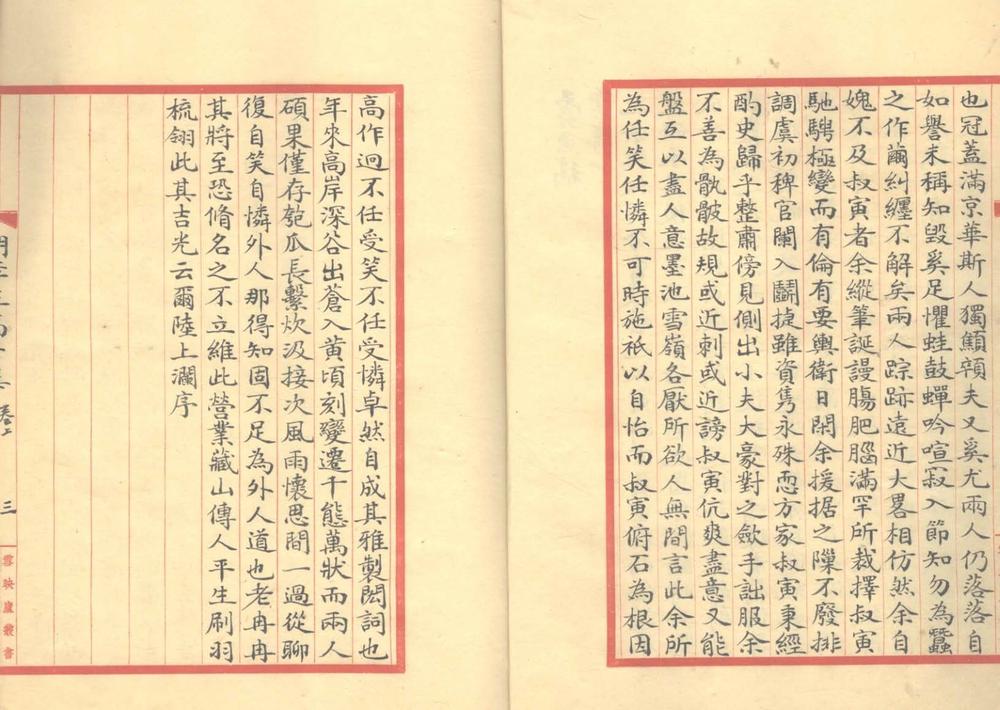 也冠蓋滿京華斯人獨顦顇夫又奚尤兩人仍落落自
如譽未稱知毀奚足懼蛙鼓蟬吟喧寂入節知勿為蠶
之作繭糾纏不解矣兩人踪跡遠近大畧相仿然余自
媿不及叔寅者余縱筆誕謾腸肥腦滿罕所裁擇叔寅
馳騁極變而有倫有要輿衛日閑余援据之隟不廢排
調虞初稗官闌入鬭捷雖資雋永殊恧方家叔寅秉經
酌史歸乎整肅傍見側出小夫大豪對之斂手詘服余
不善為骫骳故規或近刺或近謗叔寅伉爽盡意又能
盤互以盡人意墨池雪嶺各厭所欲人無間言此余所
為任笑任憐不可時施祇以自怡而叔寅俯石為根因
高作迥不任受笑不任受憐卓然自成其雅製閎詞也
年來高岸深谷出蒼入黄頃刻變遷千態萬狀而兩人
碩果僅存匏瓜長繫炊汲接次風雨懷思間一過從聊
復自笑自憐外人那得知固不足為外人道也老冉冉
其將至恐脩名之不立維此營業藏山傳人平生刷羽
梳翎此其吉光云爾陸上瀾序
卷上
三
雪映廬叢書